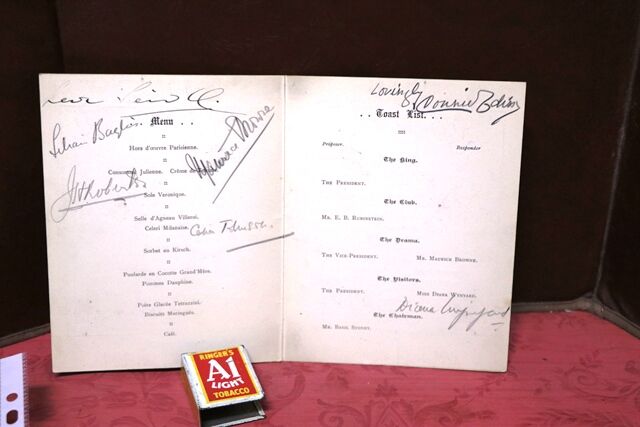 Lilian Baylis
. . Menu . .
Hors d'œuvre Parisienne.
Consommé Julienne. Crème de
Maurice Browne
Sole Veronique.
Selle d'Agneau Villaroi.
Celeri Milanaise.
Celia Johnson.
Sorbet au Kirsch.
Poularde en Cocotte Grand'Mère.
Pommes Dauphine.
Poire Glacée Tetrazzini.
Biscuits Meringués.
Café.
Lovingly
. . Toast List. . .
Proposer. Responder
The King.
THE PRESIDENT.
The Club.
MR. E. D. RUBINSTEIN.
The Drama.
THE VICE-PRESIDENT. MR. MAURICE BROWNE.
The Visitors.
THE PRESIDENT. MISS DIANA WYNYARD.
Diana Wynyard
The Chairman.
MR. BASIL SYDNEY.
RINGER'S
A1
LIGHT
TOBACCO